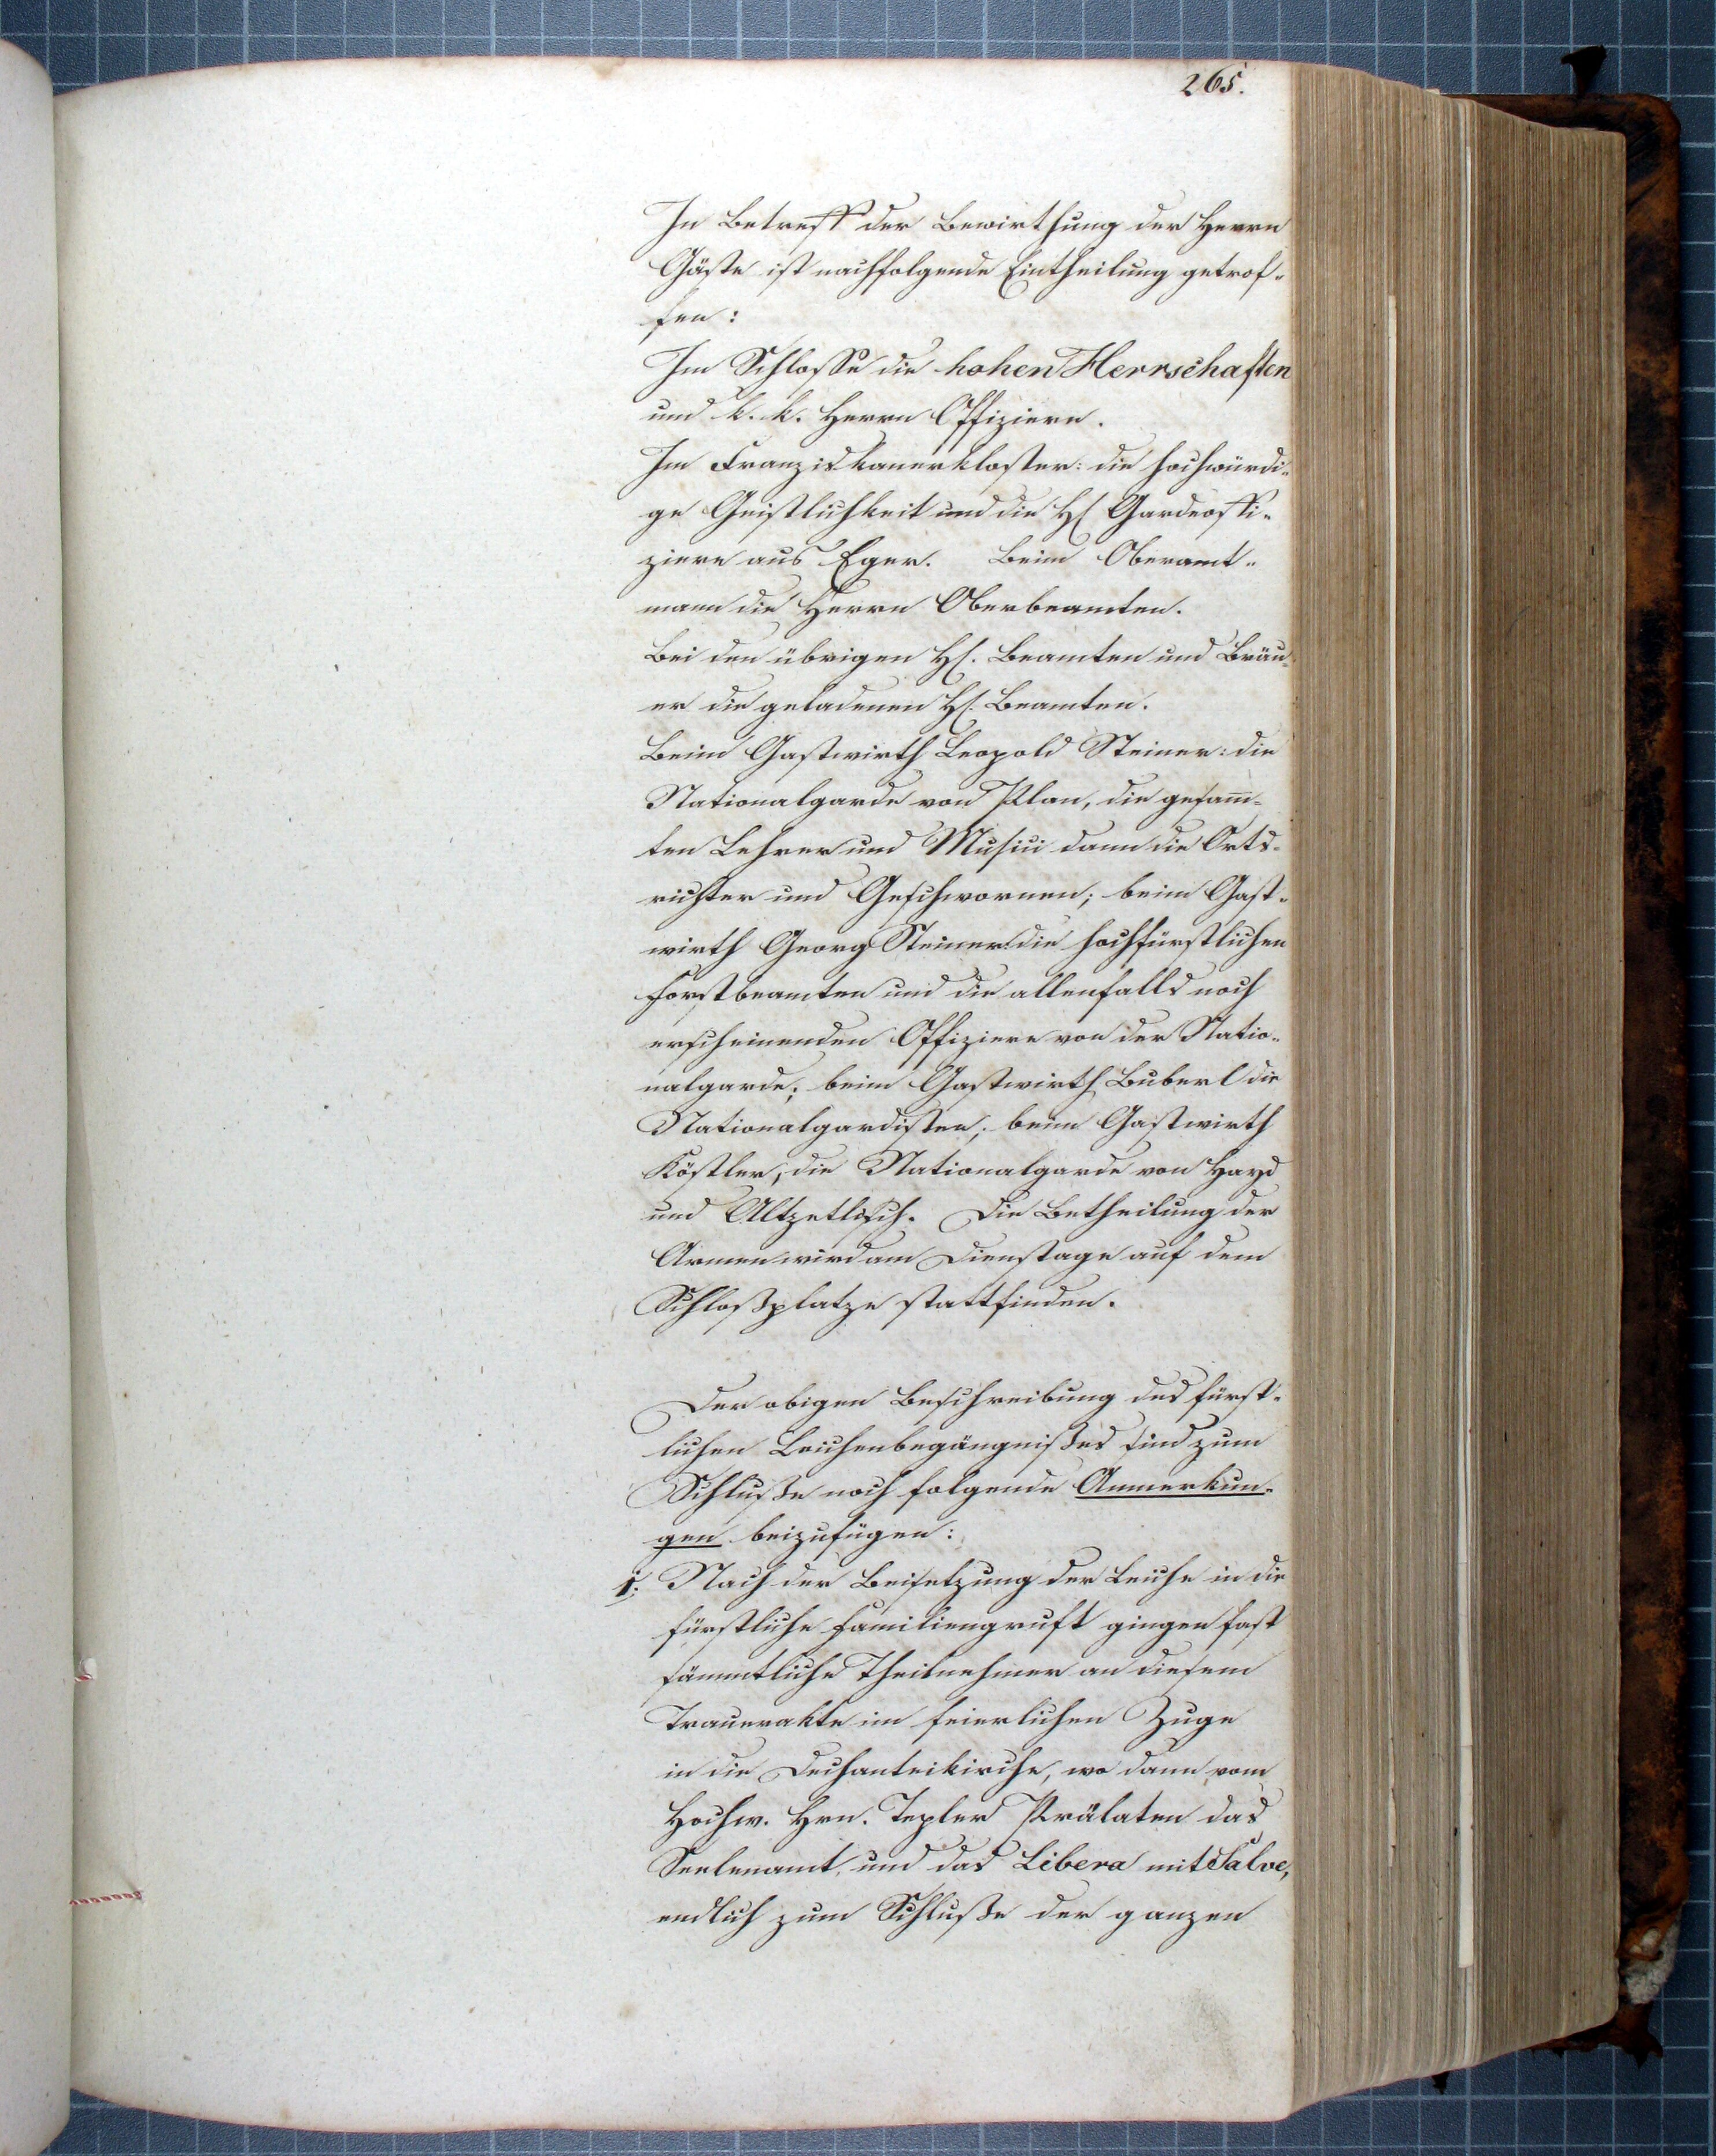 265.
In Betreff der Bewirthung der Herrn
Gäste ist nachfolgende Eintheilung getrof-
fen:
Im Schlosse die hohen Herrschaften
und k. k. Herrn Offiziere.
Im Franziskanerkloster: die hochwürdi-
ge Geistlichkeit und die H Gardeoffi-
ziere aus Eger. Beim Oberamt-
mann die Herrn Oberbeamten.
Bei den übrigen H. Beamten und Bräu-
er die geladenen H. Beamten.
Beim Gastwirth Leopold Steiner: die
Nationalgarde von Plan, die gesam̄-
ten Lehrer und Musici dann die Orts-
richter und Geschwornen; beim Gast-
wirth Georg Steiner die hochfürstlichen
Forstbeamten und die allenfalls noch
erscheinenden Offiziere von der Natio-
nalgarde; beim Gastwirth Buberl die
Nationalgardisten; beim Gastwirth
Köstler, die Nationalgarde von Hayd
und Altzetlisch. Die Betheilung der
Armen wird am Dienstage auf dem
Schloßplatze stattfinden.
Der obigen Beschreibung des fürst-
lichen Leichenbegängnißes sind zum
Schluße noch folgende Anmerkun-
gen beizufügen:
1. Nach der Beisetzung der Leiche in die
fürstliche Familiengruft gingen fast
sämmtliche Theilnehmer an diesem
Trauerakte im feierlichen Zuge
in die Dechanteikirche, wo dann vom
Hochw. Hrn. Tepler Prälaten das
Seelenamt, und das Libera mit Salve,
endlich zum Schluße der ganzen